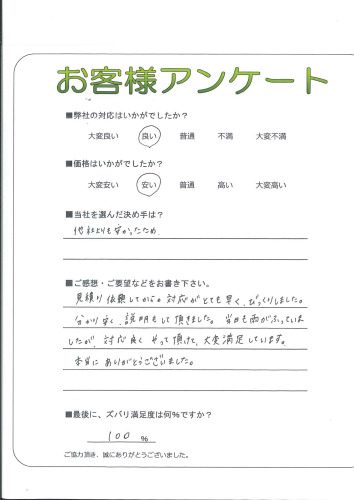 お客様アンケート
■弊社の対応はいかがでしたか？
大変良い 良い 普通 不満 大変不満
■価格はいかがでしたか？
大変安い 安い 普通 高い 大変高い
■当社を選んだ決め手は？
他社よりも安かったため
■ご感想・ご要望などをお書き下さい。
見積り依頼してからの対応がとても早く、びっくりしました。
分かり安く、説明もして頂きました。当日も雨がふっていま
したが、対応良くやって頂けて、大変満足しています。
本当にありがとうございました。
■最後に、ズバリ満足度は何%ですか？
100 %
ご協力頂き、誠にありがとうございました。